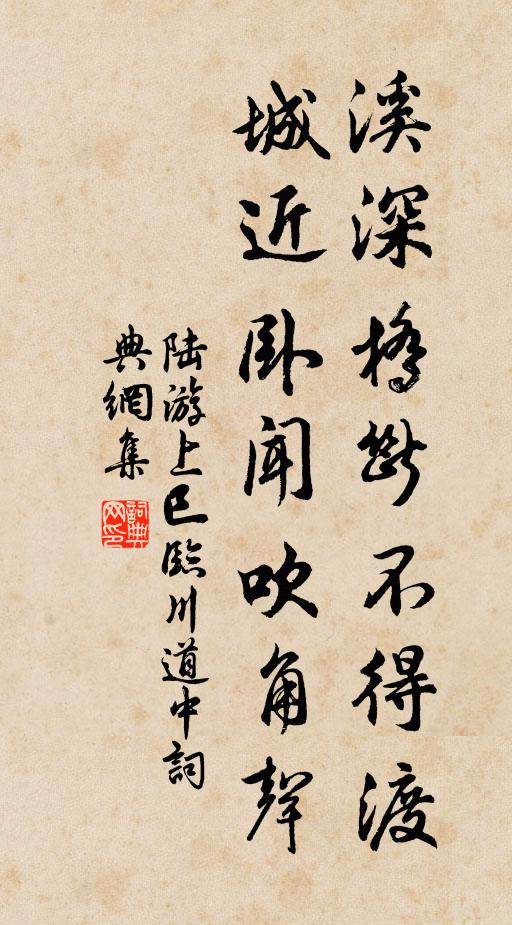 溪深橋斷不得渡
城近卧聞吹角聲
陆游上巳臨川道中詞
典網集
詞典網印